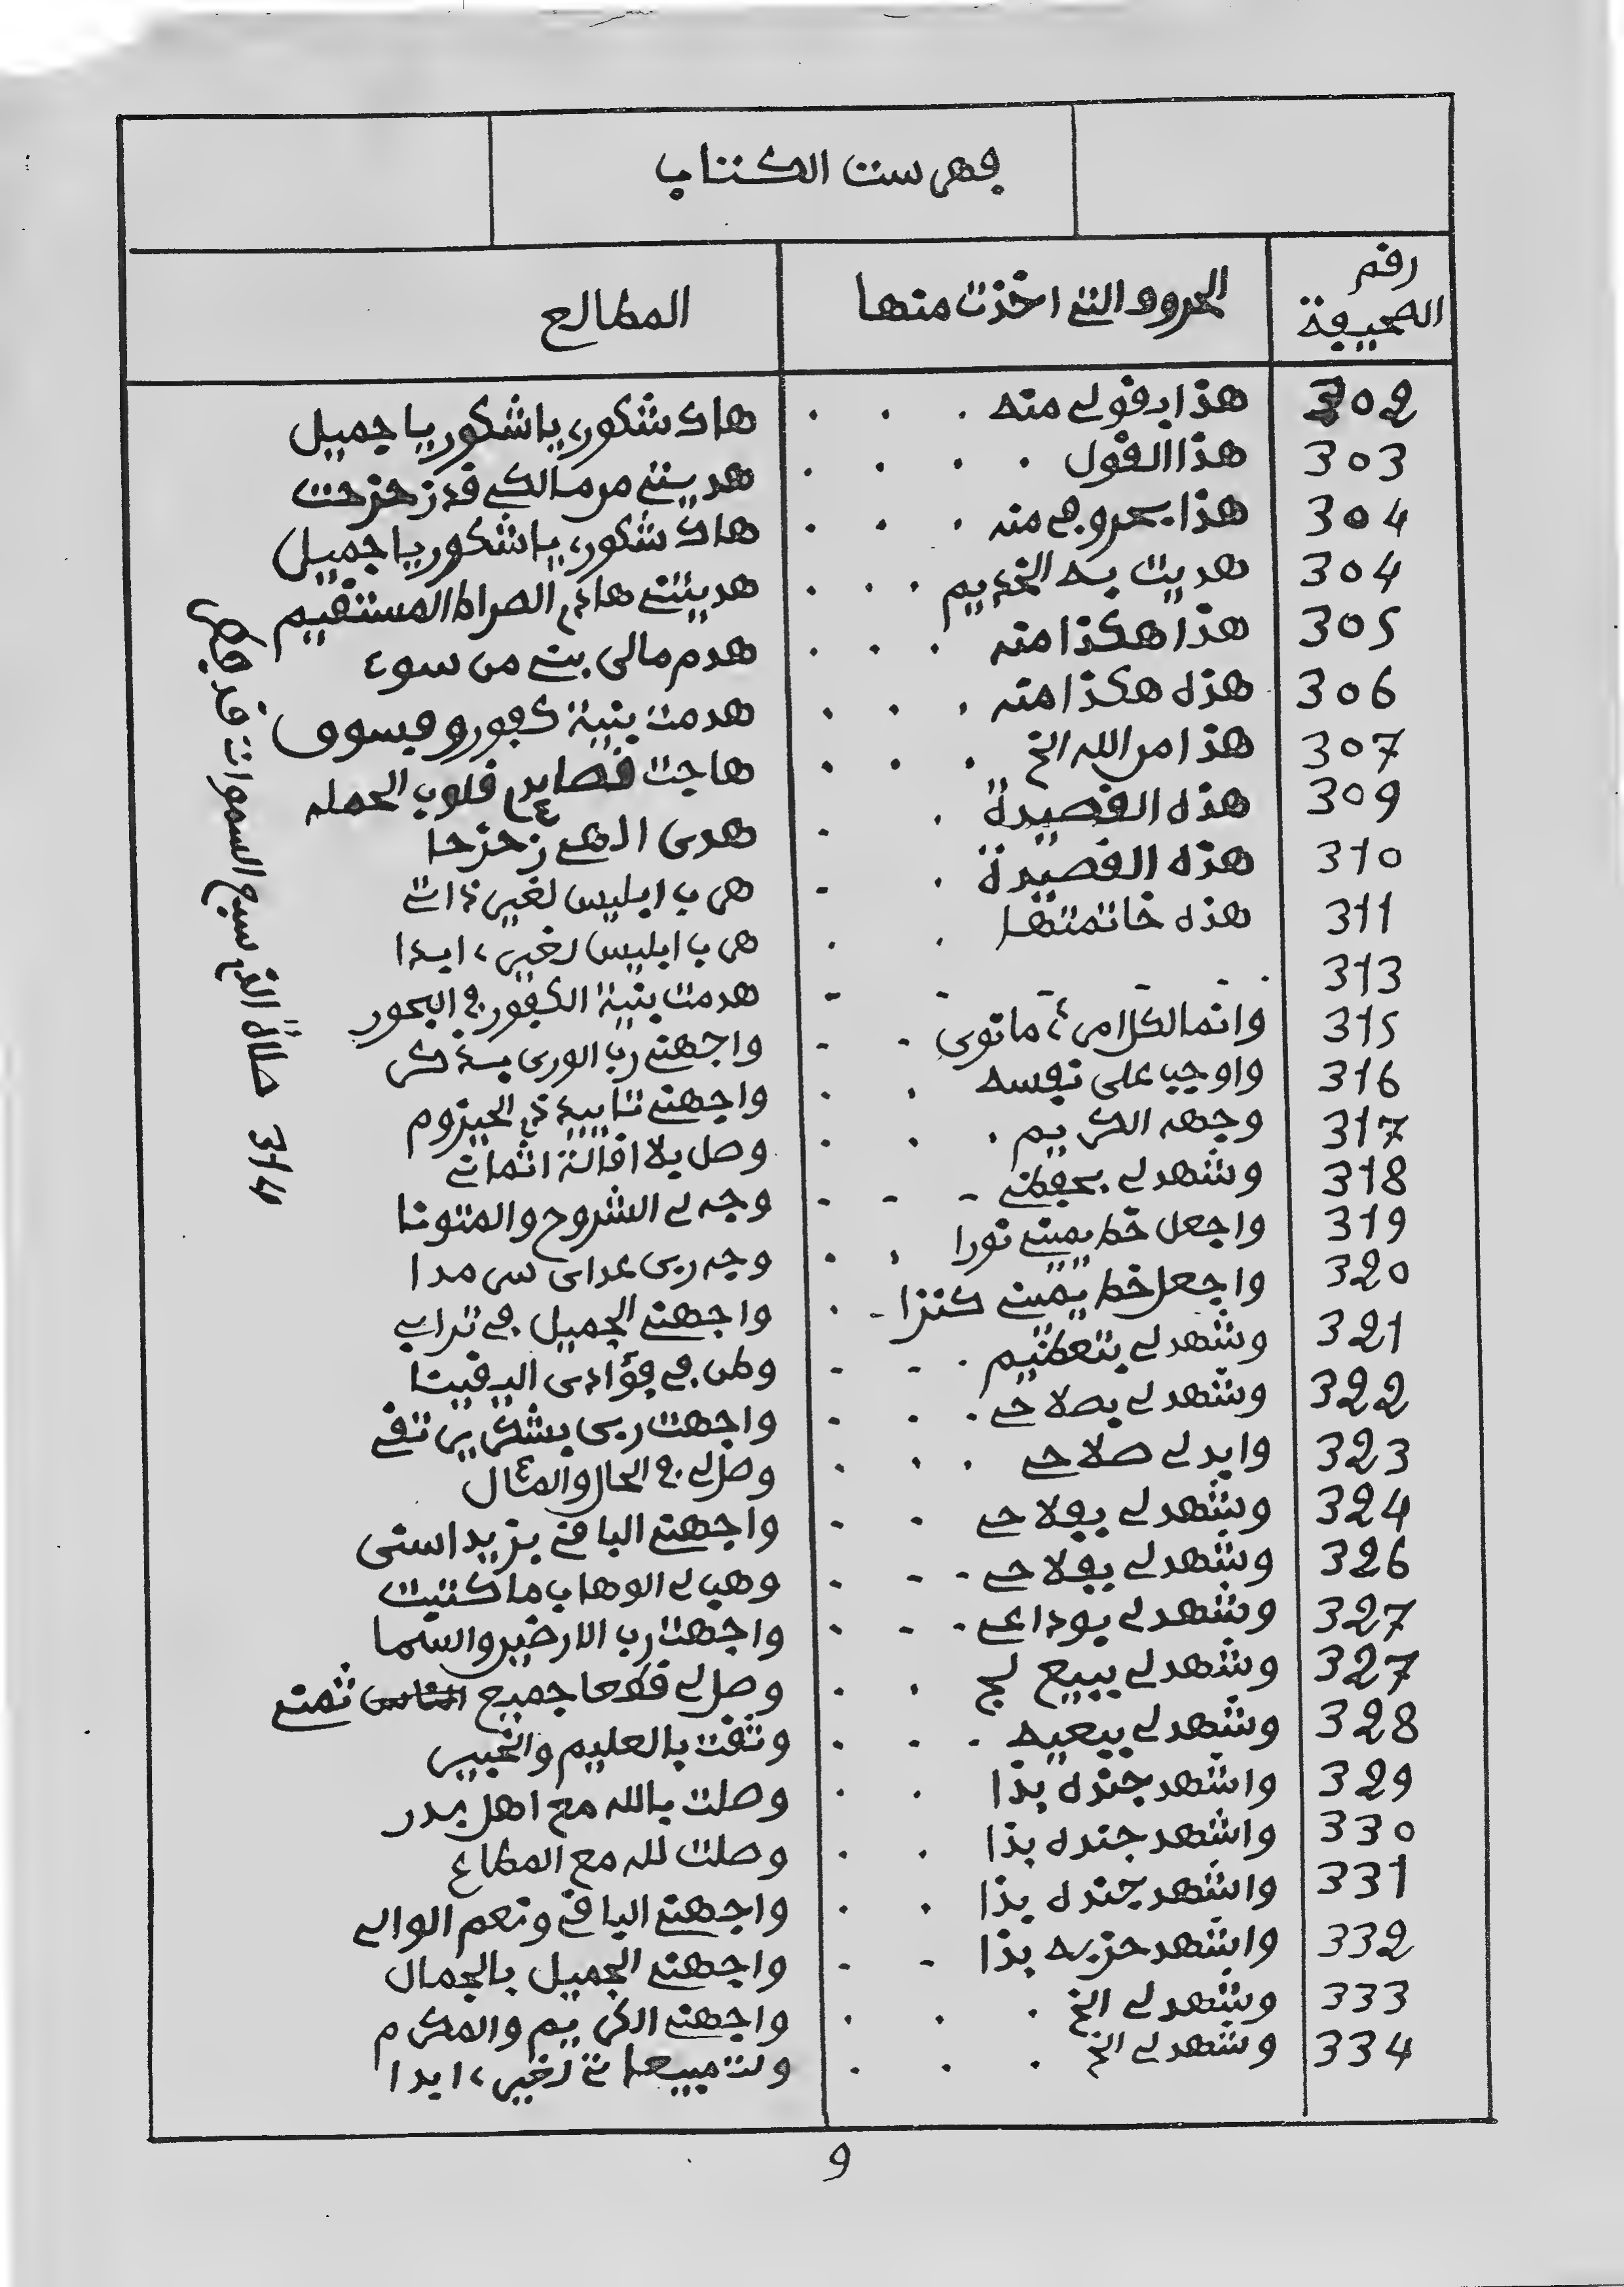 فهرست الكتاب
رقم الصحيفة | الحروف التي اخذت منها | المطالع
302 هذا بقولي منه . . . هاك شكور يا شكور يا جميل
303 هذا القول . . . . هديتني من مالكي قد زحزحت
304 هذا بحروفي منه . . . هاك شكور يا شكور يا جميل
304 هديت به الخديم . . . هديتني هادي الصراط المستقيم
305 هذا هكذا منه . . . هدم مالي بني من سوء
306 هذه هكذا منه . . . هدمت بنية كفور وفسوق
307 هذا من الله الخ . . . هاجت قصايدي قلوب الحمله
309 هذه القصيدة . - هدى الهي زحزحا
310 هذه القصيدة . - هرب ابليس لغير ذاتي
311 هذه خاتمتها . . هرب ابليس لغيري ابدا
313 . - - - - - هدمت بنية الكفور في البحور
315 وانما لكل امرئ ما نوى - - واجهني رب الورى بذكر
316 واوجب على نفسه . . واجهني تابيد ذي الحيزوم
317 وجهه الكريم . . . وصل بلا اقالة اثماني
318 وشهد لي بحفظي - - - وجه لي الشروح والمتونا
319 واجعل خط يميني نورا . . وجه ربي عداي سرمدا
320 واجعل خط يميني كنزا - . واجهني الجميل في ترابي
321 وشهد لي بتعظيم . - - وطن في فؤادي اليقينا
322 وشهد لي بصلاحي . . . واجهت ربي بشكر يرتقي
323 وايد لي صلاحي . . . وصل لي في الحال والمئال
324 وشهد لي بفلاحي - - واجهني الباقي بزيد استي
326 وشهد لي بفلاحي - - - وهب لي الوهاب ما كتبت
327 وشهد لي بوداعي - - - واجهت رب الارضين والسما
327 وشهد لي ببيع لج . . وصل لي قطعا جميع ثمني
328 وشهد لي ببيعيه . - . وثقت بالعليم والخبير
329 واشهد جنده بذا . . وصلت بالله مع اهل بدر
330 واشهد جنده بذا . . وصلت لله مع المطاع
331 واشهد جنده بذا . . واجهني الباقي ونعم الوالي
332 واشهد حزبه بذا - - واجهني الجميل بالجمال
333 وشهد لي الخ . . . واجهني الكريم والمكرم
334 وشهد لي الخ . . . ولت مبيعاتي لغيري ابدا
314 صلاة الذي سبع السموات قد
9